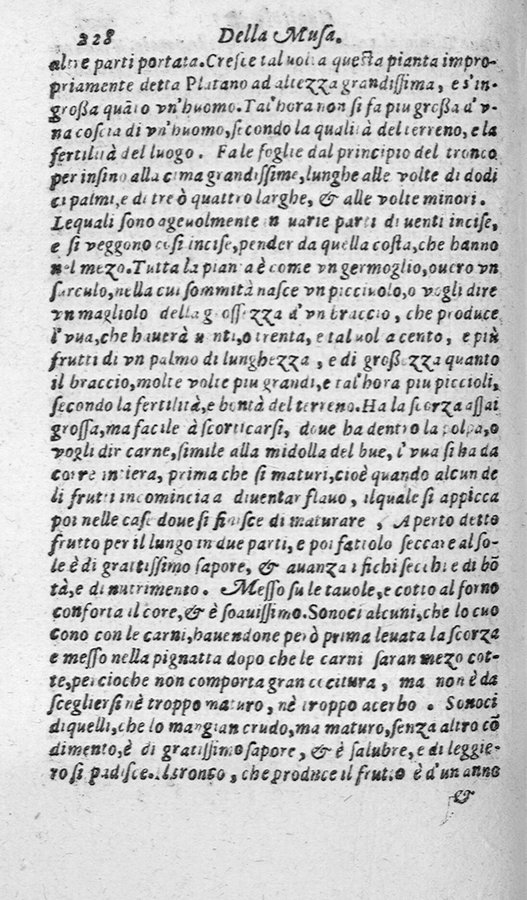 228 Della Musa.
altre parti portata. Cresce tal uolta questa pianta impro-
priamente detta Platano ad altezza grandissima, e s'in-
grossa quãto vn'huomo. Tal'hora non si fa piu grossa d'v-
na coscia di vn'huomo, secondo la qualità del terreno, e la
fertilità del luogo. Fa le foglie dal principio del tronco
per insino alla cima grandissime, lunghe alle volte di dodi
ci palmi, e di tre ò quattro larghe, & alle volte minori.
Lequali sono ageuolmente in uarie parti di uenti incise,
e si veggono cosi incise, pender da quella costa, che hanno
nel mezo. Tutta la pianta è come vn germoglio, ouero vn
surculo, nella cui sommità nasce vn picciuolo, o vogli dire
vn magliolo della grossezza d'vn braccio, che produce
l'vua, che hauerà uenti, o trenta, e tal uol a cento, e più
frutti di vn palmo di lunghezza, e di grossezza quanto
il braccio, molte volte piu grandi, e tal'hora piu piccioli,
secondo la fertilità, e bontà del terreno. Ha la scorza assai
grossa, ma facile à scorticarsi, doue ha dentro la polpa, o
vogli dir carne, simile alla midolla del bue, l'vua si ha da
corre intiera, prima che si maturi, cioè quando alcun de
li frutti incomincia a diuentar flauo, ilquale si appicca
poi nelle case doue si finisce di maturare, Aperto detto
frutto per il lungo in due parti, e poi fattolo seccare al so-
le è di grattissimo sapore, & auanza i fichi secchi e di bõ
tà, e di nutrimento. Messo su le tauole, e cotto al forno
conforta il core, & è soauissimo. Sonoci alcuni, che lo cuo
cono con le carni, hauendone però prima leuata la scorza
e messo nella pignatta dopo che le carni saran mezo cot-
te, percioche non comporta gran cocitura, ma non è da
scegliersi nè troppo maturo, nè troppo acerbo. Sonoci
di quelli, che lo mangian crudo, ma maturo, senza altro cõ
dimento, è di gratissimo sapore, & è salubre, e di leggie-
ro si padisce. Il tronco, che produce il frutto è d'un anno
&